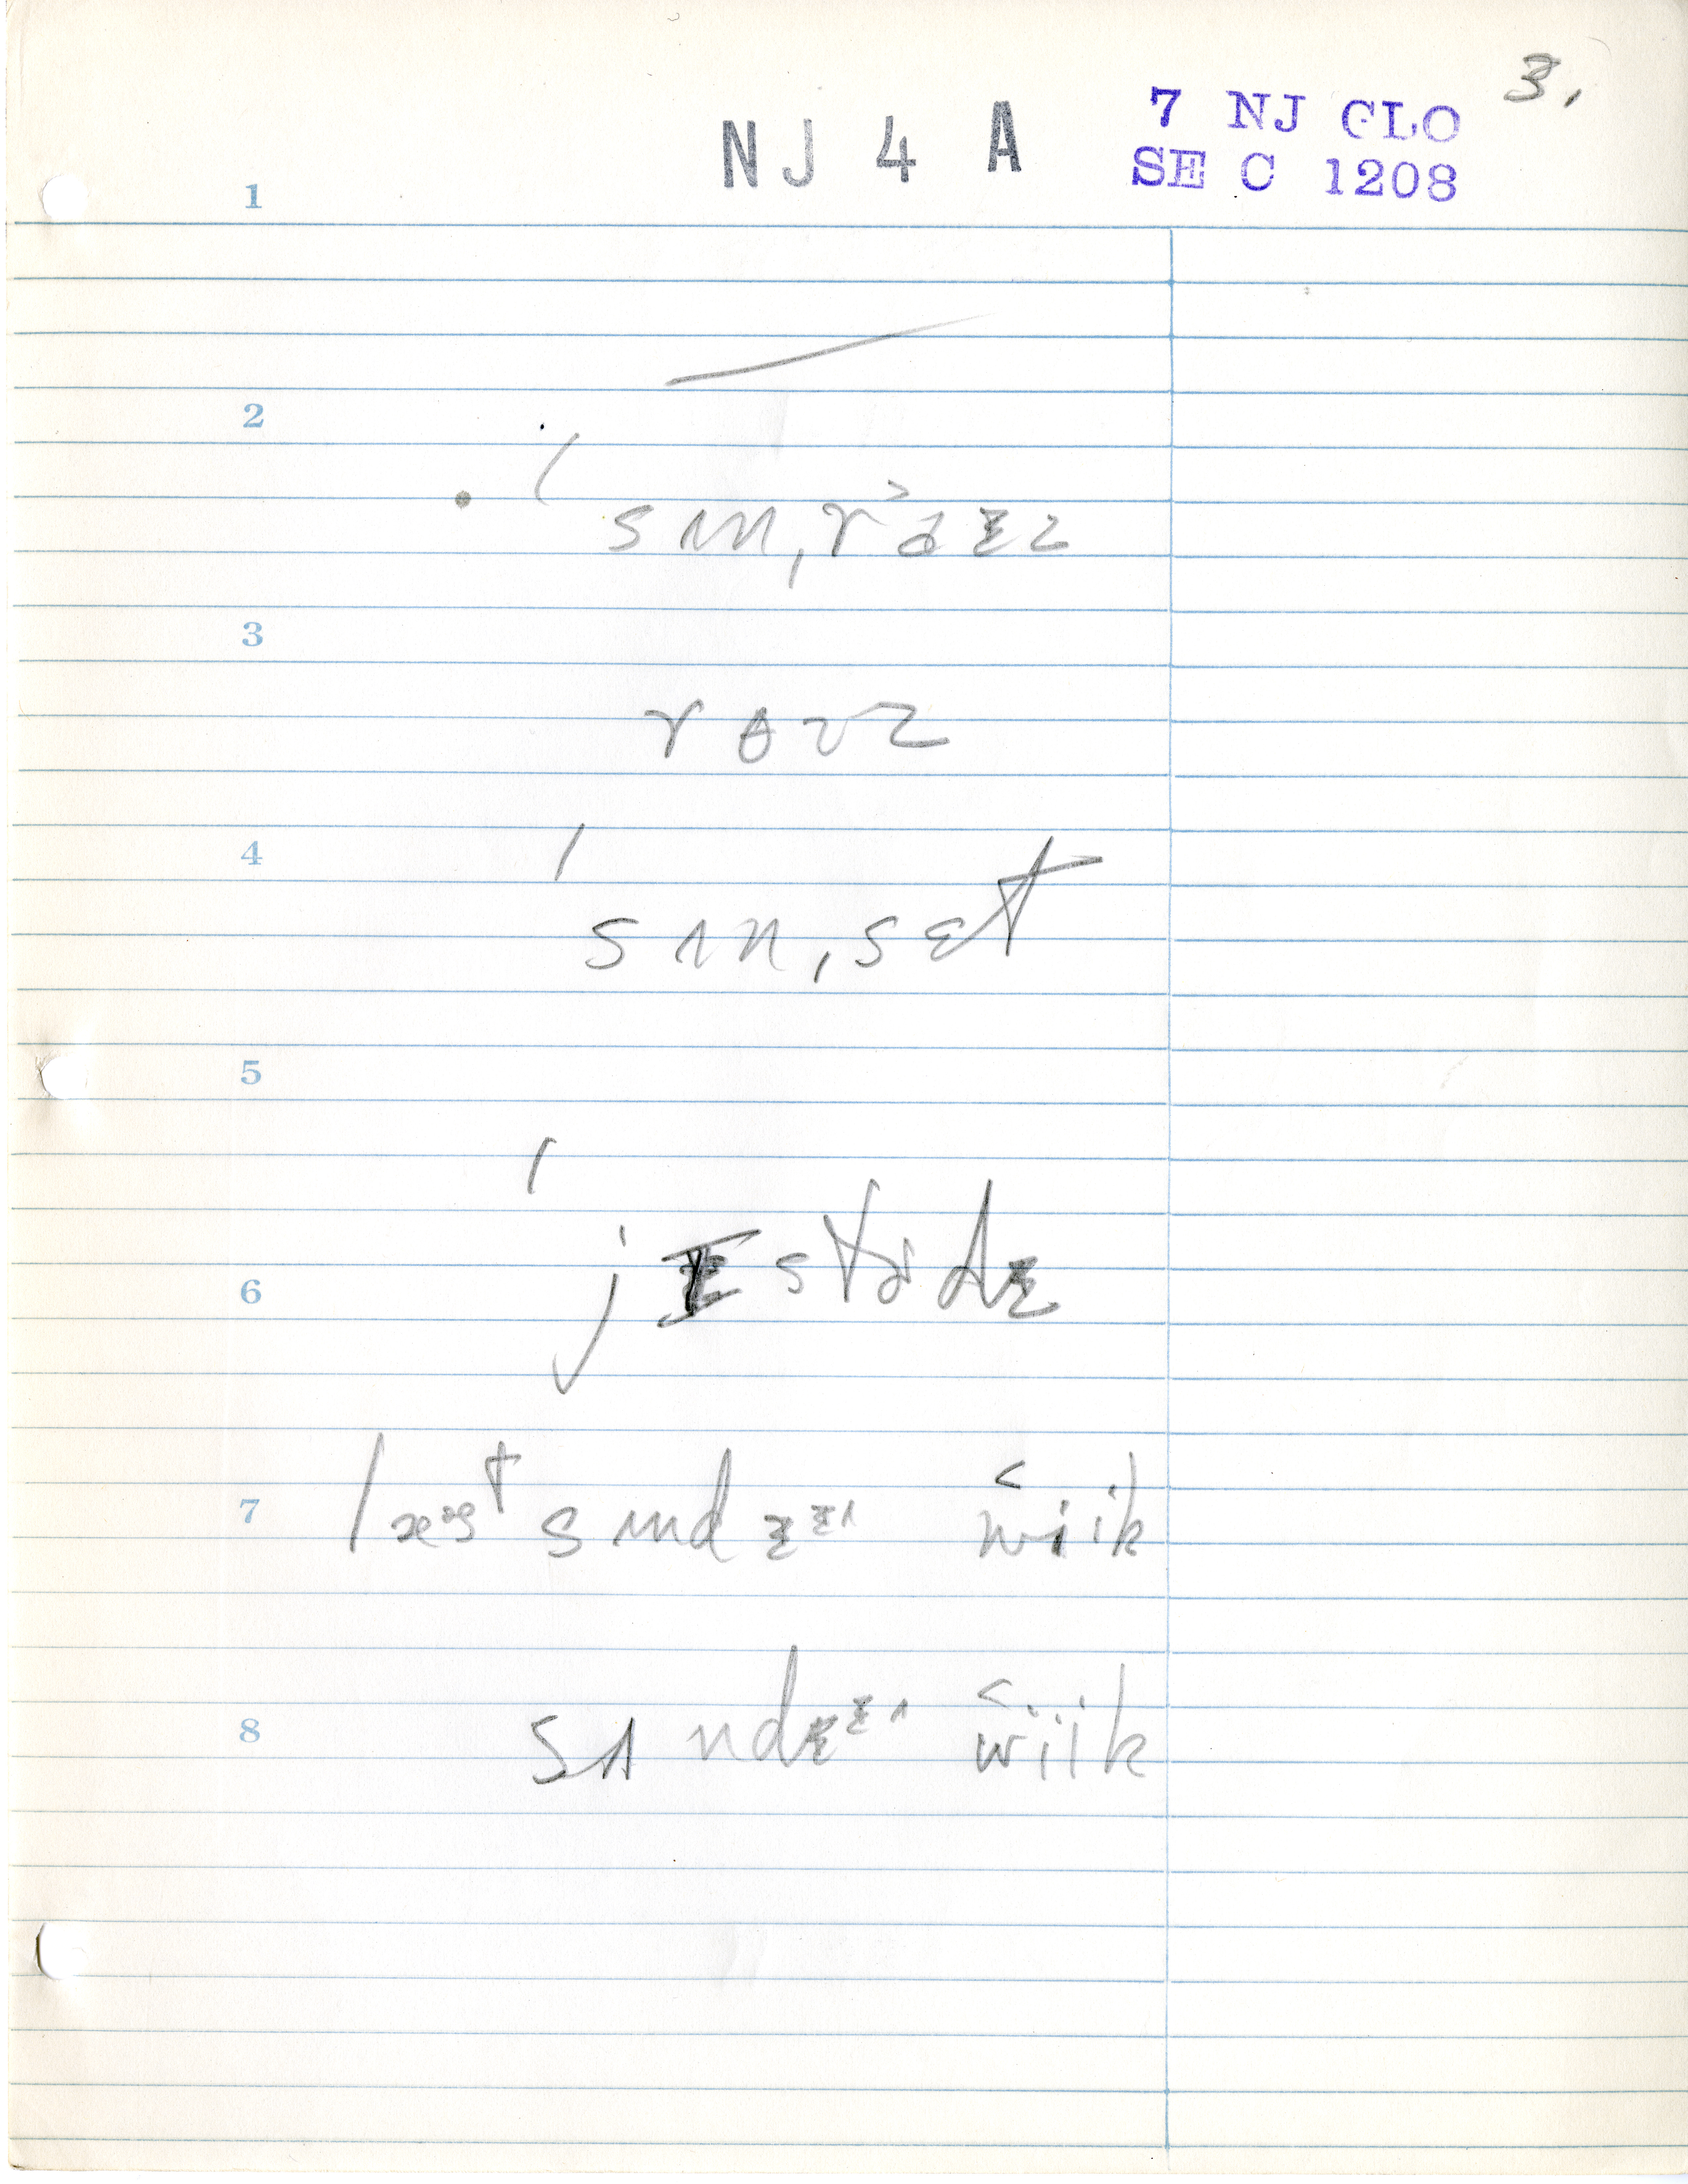 3.
NJ 4 A
7 NJ GLO
SE C 1208
1
2
ˈsʌn,ra˃ɪz
3
roʊz
4
ˈsʌn,sɛt
5
6
ˈjɛstɚdɪ
7
læst sʌndɪ wiik
8
sʌndɪ wiik